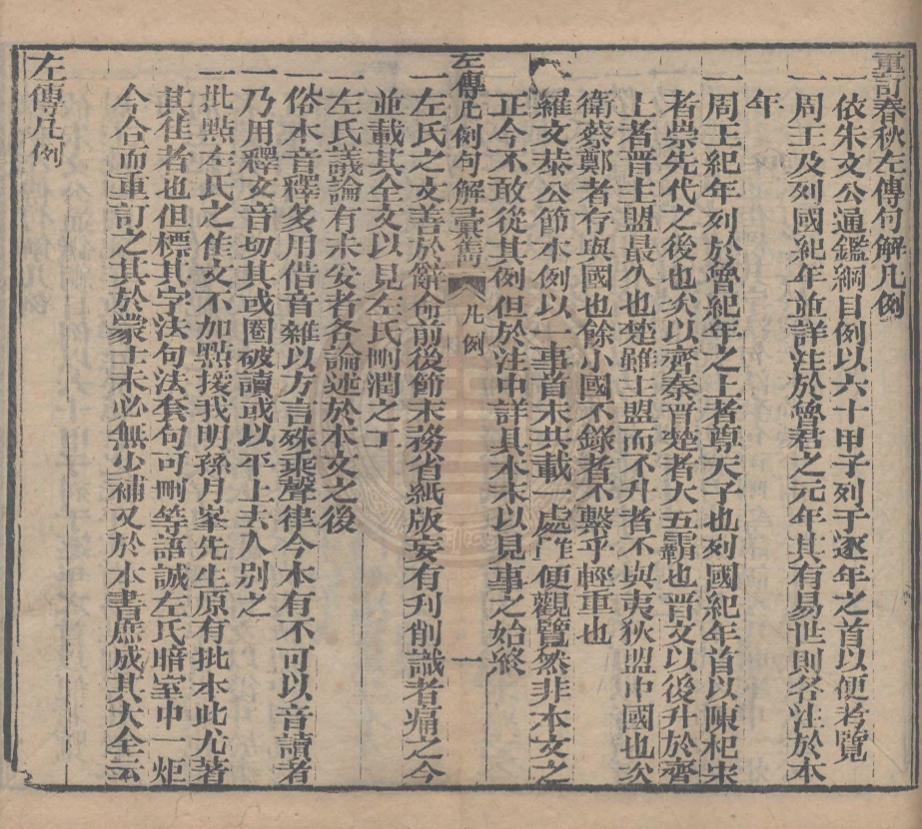 重訂春秋左傳句解凡例
一依朱文公通鑑綱目例以六十甲子列于逐年之首以便考覽
一周王及列國紀年並詳注於魯君之元年其有易世則各注於本
年
一周王紀年列於魯紀年之上者尊天子也列國紀年首以陳杞宋
者崇先代之後也次以齊秦晋楚者大五霸也晋文以後升於齊
上者晋主盟最久也楚雖主盟而不升者不與夷狄盟中國也次
衛蔡鄭者存與國也餘小國不錄者不繫乎輕重也
羅文恭公節本例以一事首末共載一處雖便觀覽然非本文之
正今不敢從其例但於注中詳具本末以見事之始終
左傳凡例句解彙雋 凡例 一
一左氏之文善於辭命前後節末務省紙版妄有刋削識者痛之今
並載其全文以見左氏刪潤之工
一左氏議論有未安者各論述於本文之後
一俗本音釋多用借音雜以方言殊乖聲律今本有不可以音讀者
乃用釋文音切其或圈破讀或以平上去入別之
一批點左氏之隹文不加點掇我明孫月峯先生原有批本此尤著
其佳者也但標其字法句法套句可刪等語誠左氏暗室中一炬
今合而重訂之其於蒙士未必無少補又於本書庶成其大全云
左傳凡例